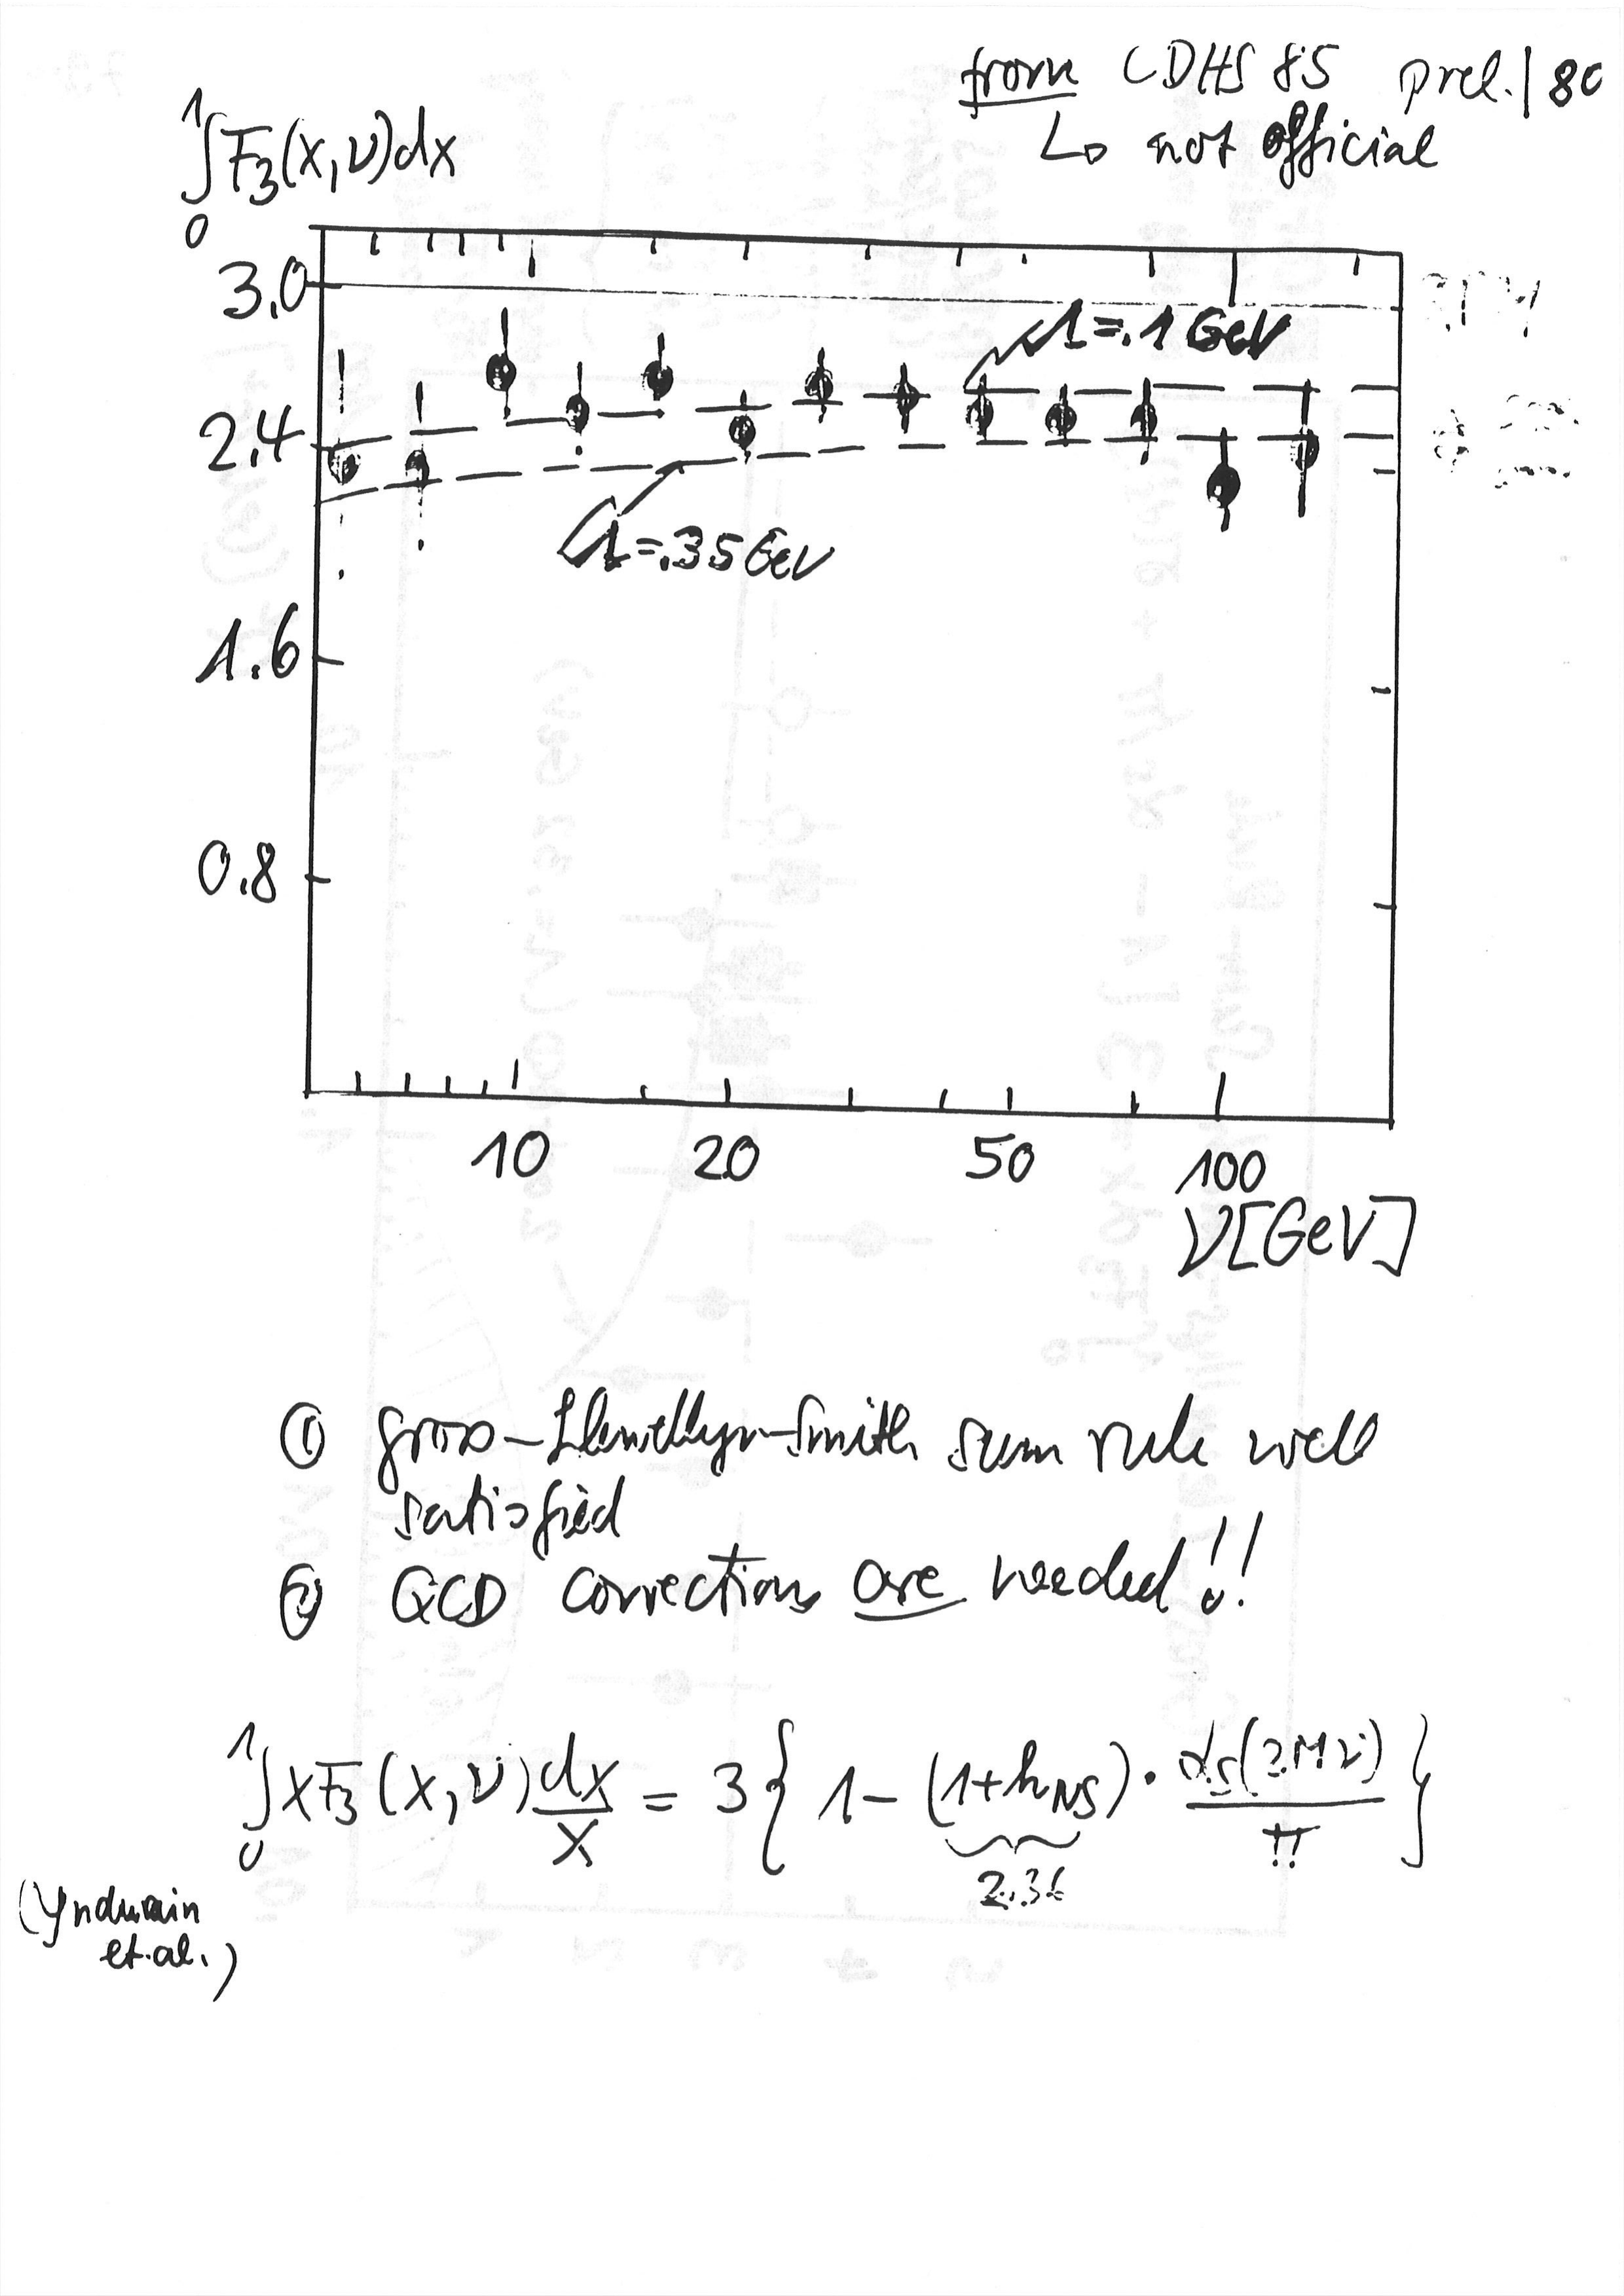 from CDHS 85 prel. | 80
↳ not official
∫₀¹ F₃(x,ν)dx
3.0
Λ=.1 GeV
2.4
Λ=.35 GeV
1.6
0.8
10 20 50 100
ν[GeV]
① Gross-Llewellyn-Smith sum rule well
satisfied
② QCD corrections are needed!!
∫₀¹ xF₃(x,ν) dx/x = 3{ 1-(1+h_NS)·αs(2Mν)/π }
2.36
(Yndurain
et.al.)